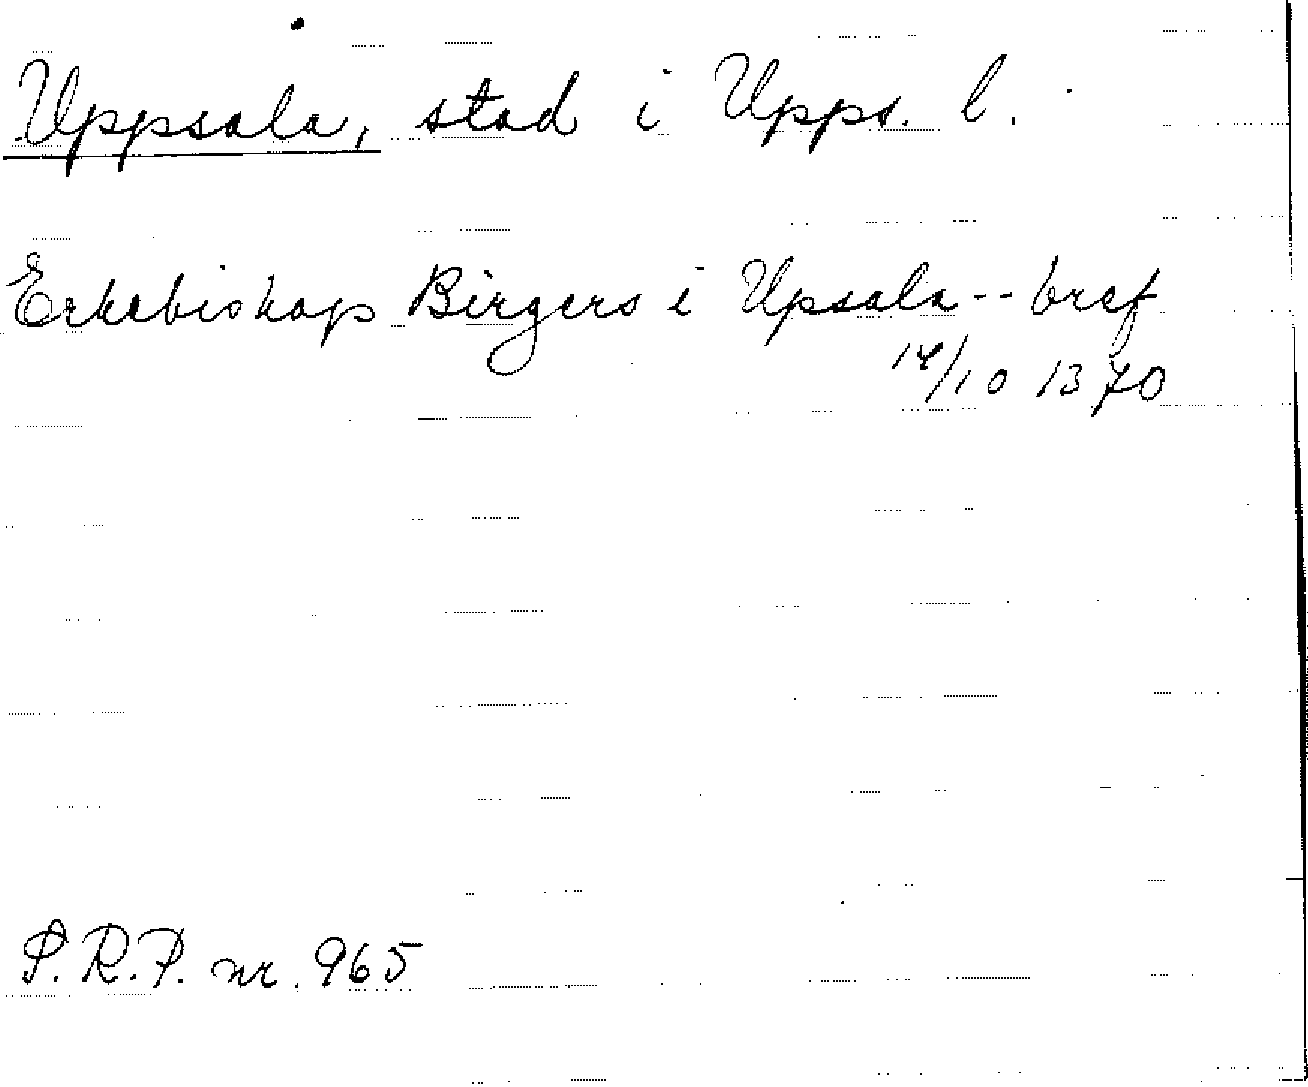 Uppsala, stad i Upps. l.
Erkebiskop Birgers i Upsala -- bref
14/10 1370
S.R.P. nr. 965